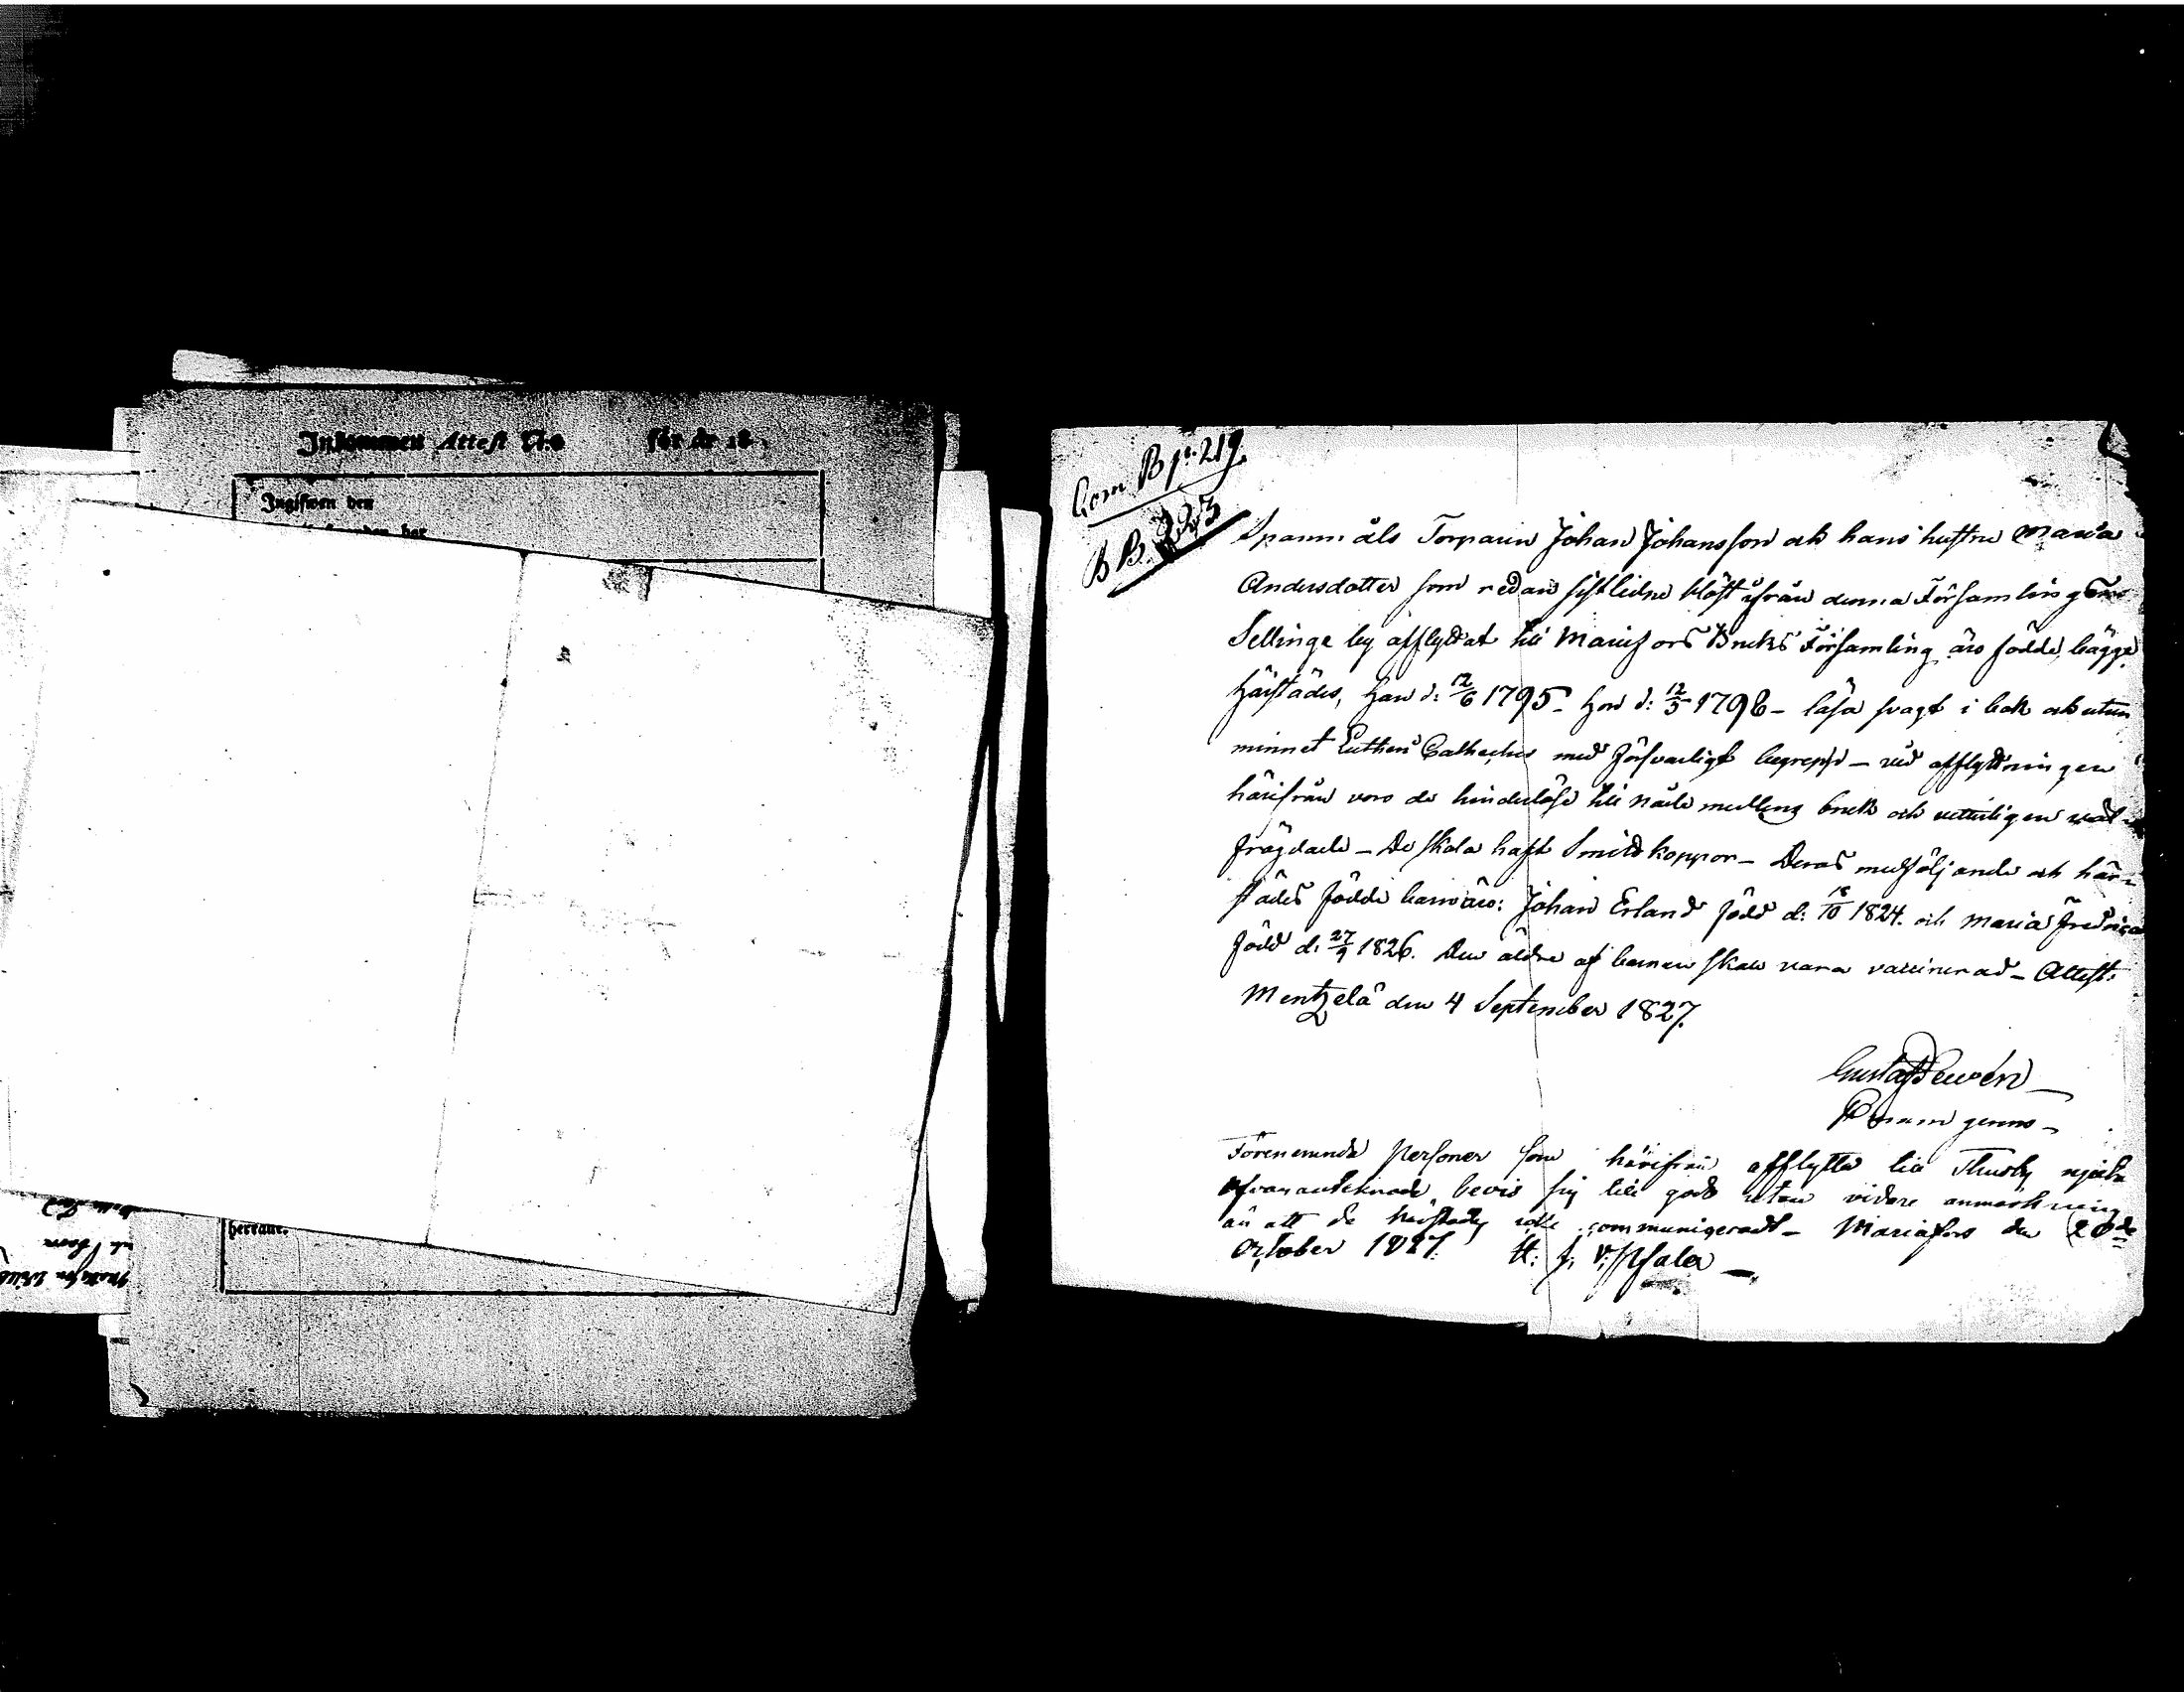 Inkommen Attest N:o för år 18
Ingifwen den
herrane.
Com B p. 219.
B B. 223
Spanmåls Torparen Johan Johansson och hans hustru Maria
Andersdotter som redan sistledne höst ifrån denna Församling
Sellinge by afflyttat till Mariefors Bruks Församling äro födde bägge
härstädes, han d: 12/6 1795 hon d: 12/5 1798 – läsa svagt i bok och utan
minnet Lutheri Catheches med försvarligt begrepp – vid afflyttningen
härifrån voro de hinderlöse till näste bruk och veterligen väl
frägdade – De skola haft Smitkoppor – Deras medföljande och här-
städes födde barn äro: Johan Erland född d: 18/10 1824. och Maria Fredrica
född d: 27/9 1826. Den äldre af barnen skall vara vaccinerad – Attest.
Mentzelä den 4 September 1827.
Gustaf
Förenemnde Personer som härifrån afflytta till Thusby njuta
ofvanantecknade bevis sig till godo utan vidare anmärkning
än att de härstädes icke communigeradt – Mariafors den 20de
October 1827.